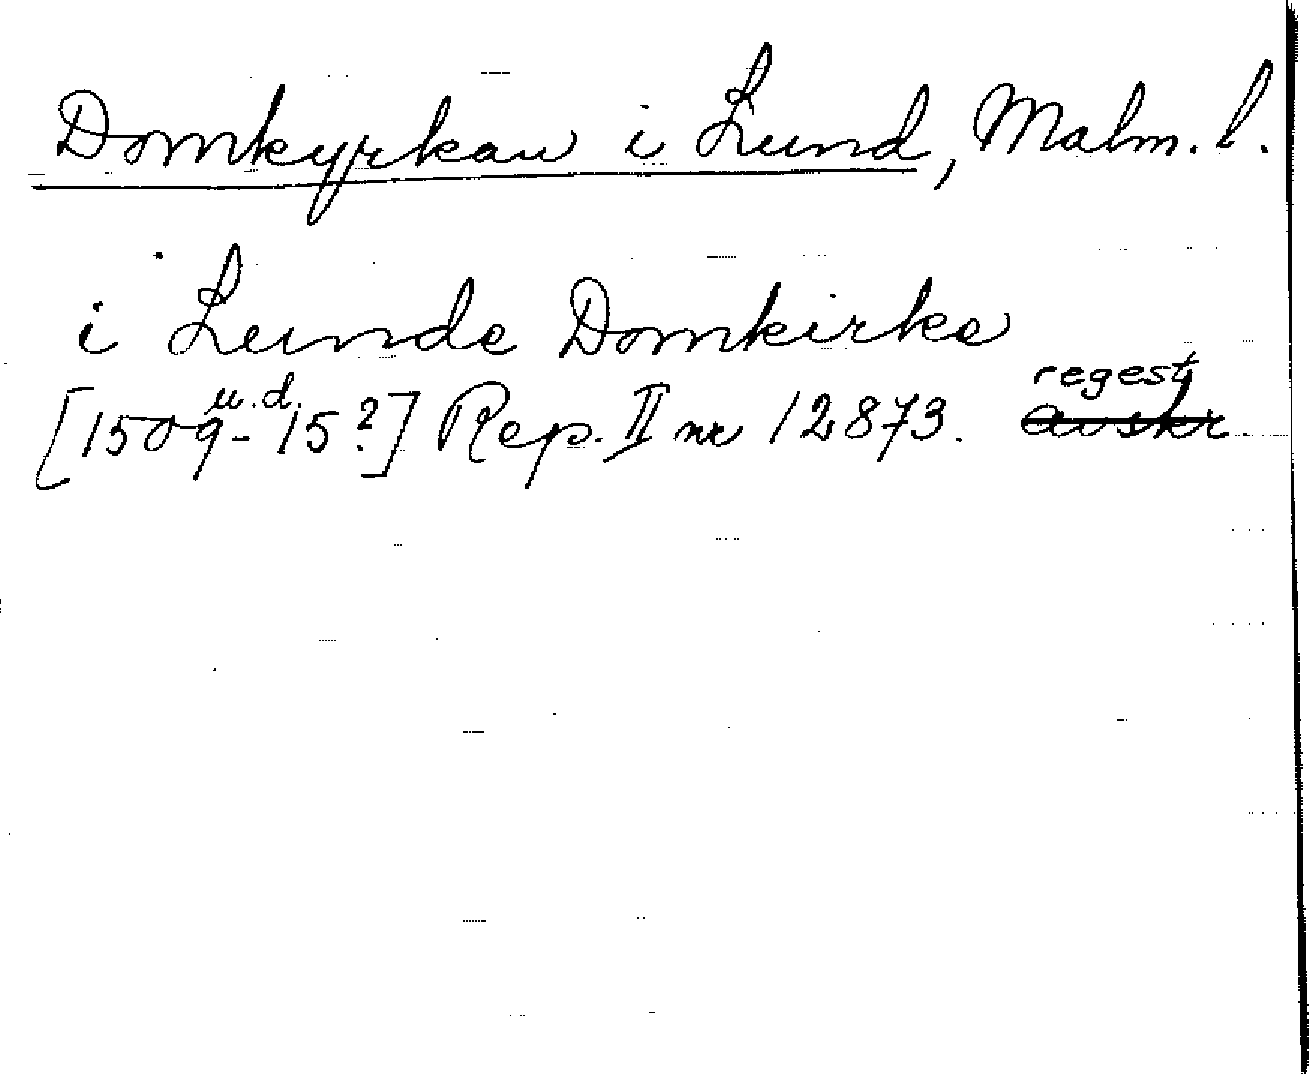 Domkyrkan i Lund, Malm. l.
i Lunde Domkirke
u.d. regest
[1509-15?] Rep. II nr 12873. avskr.